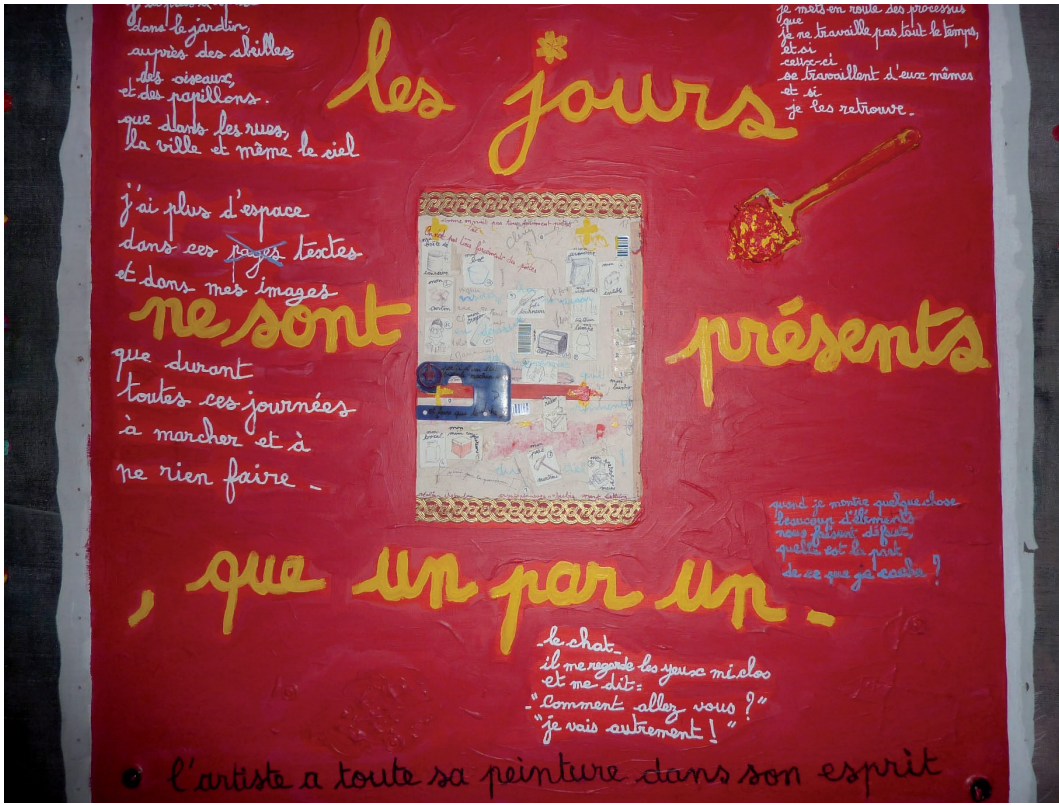 dans le jardin,
auprès des abeilles,
des oiseaux,
et des papillons.
que dans les rues,
la ville et même le ciel
j'ai plus d'espace
dans ces pages textes
et dans mes images
que durant
toutes ces journées
à marcher et à
ne rien faire _
je mets en route des processus
que
je ne travaille pas tout le temps,
et si
ceux-ci
se travaillent d'eux mêmes
et si
je les retrouve _
les jours
ne sont présents
, que un par un _
quand je montre quelque chose
beaucoup d'éléments
nous faisant défaut,
quelle est la part
de ce que je cache ?
_ le chat _
il me regarde les yeux mi clos
et me dit:
_"Comment allez vous ?"
_"je vais autrement ! "
l'artiste a toute sa peinture dans son esprit